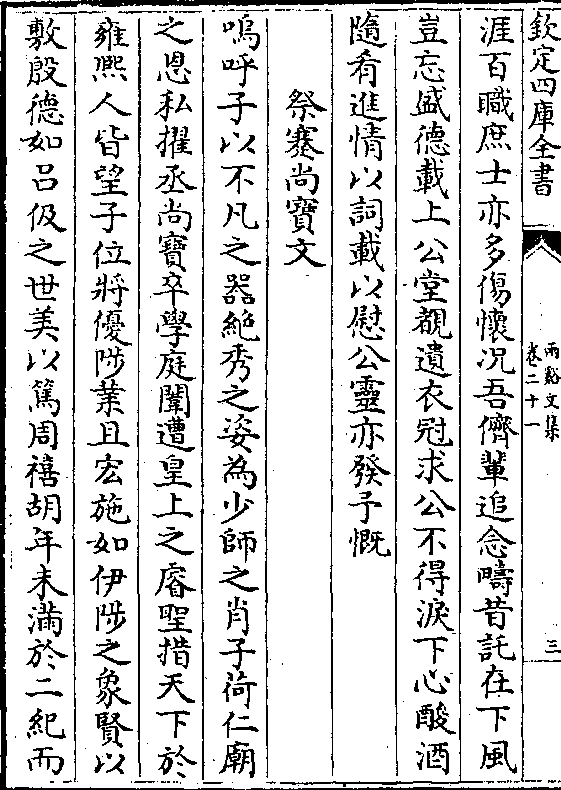 欽定四庫全書
兩谿文集
卷二十一
三
涯百職庶士亦多傷懷况吾儕輩追念疇昔託在下風
豈忘盛德載上公堂覩遺衣冠求公不得淚下心酸酒
隨肴進情以詞載以慰公靈亦發予慨
祭蹇尚寶文
嗚呼子以不凡之器絶秀之姿為少師之肖子荷仁廟
之恩私擢丞尚寶卒學庭闈遭皇上之睿聖措天下於
雍熙人皆望子位將優陟業且宏施如伊陟之象賢以
敷殷德如吕伋之世美以篤周禧胡年未滿於二紀而